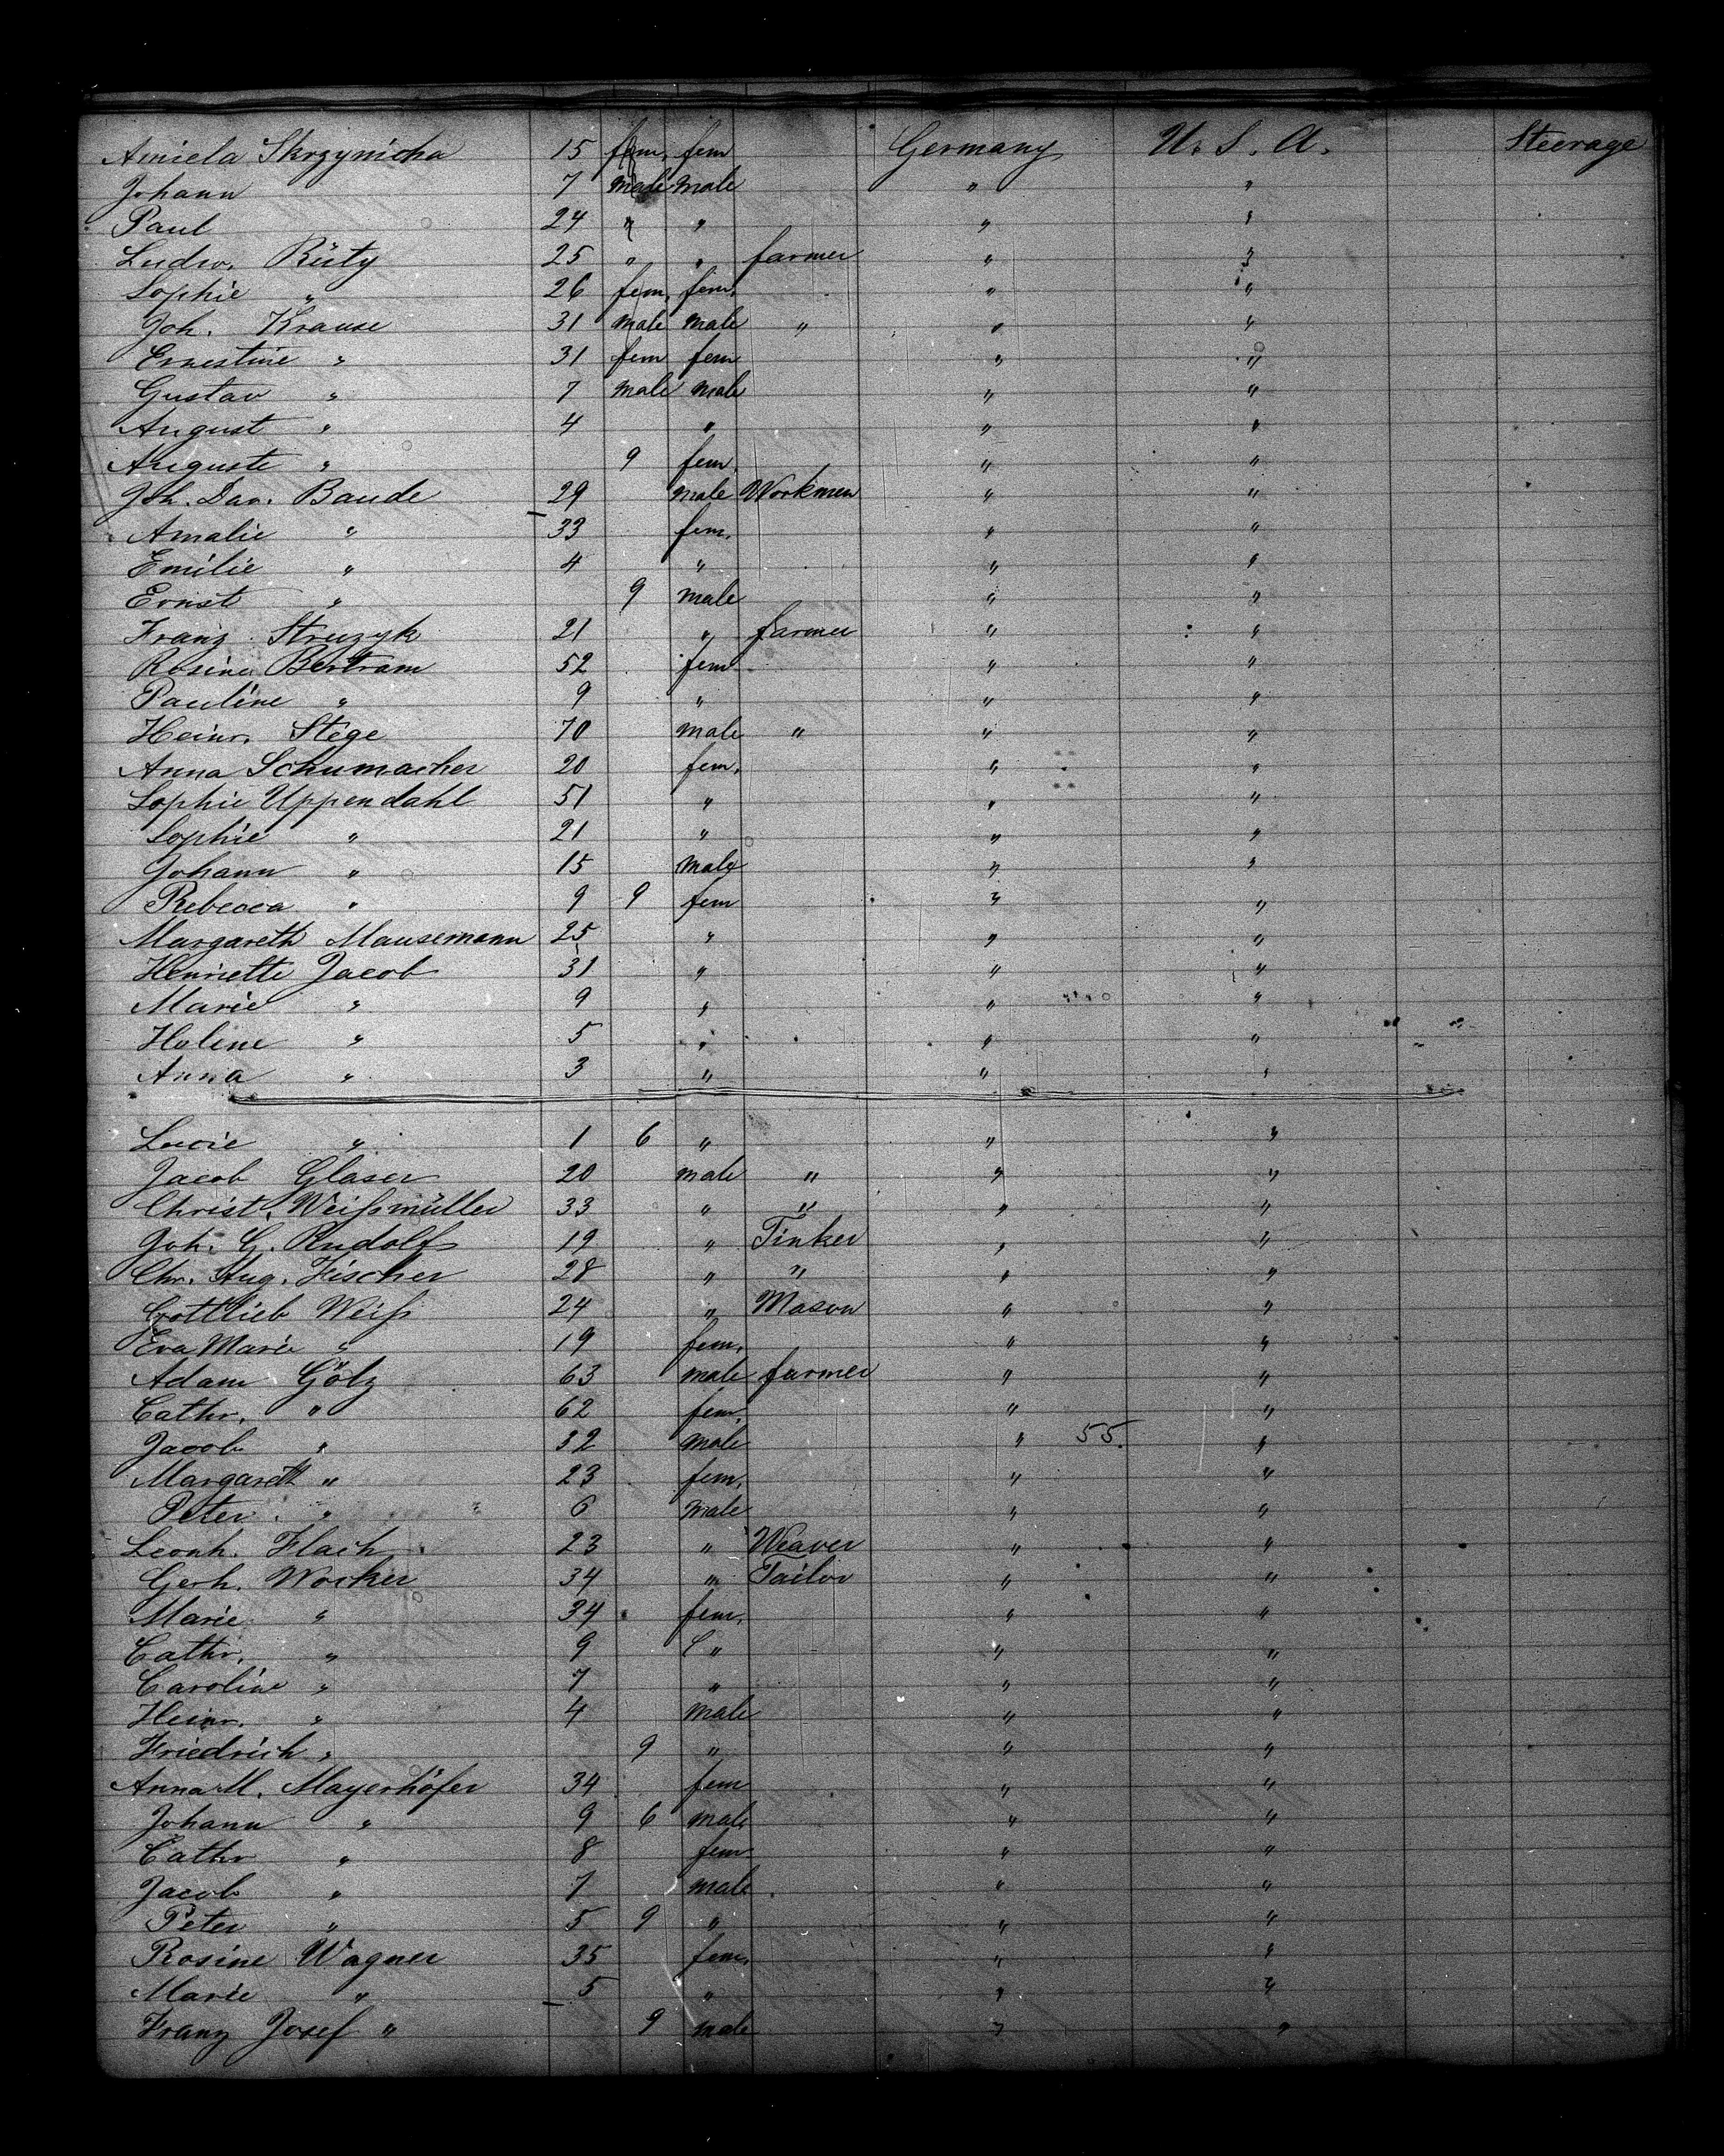 Amiela Skrzynicka 15 fem. fem Germany U. S. A. Steerage
Johann 7 male male " "
Paul 24 " " " "
Ludw. Rüty 25 " " farmer " "
Sophie " 26 fem. fem. " "
Joh. Krause 31 male male " " "
Ernestine " 31 fem fem " "
Gustav " 7 male male " "
August " 4 " " "
Auguste " 9 fem. " "
Joh. Dav. Baude 29 male Workmen " "
Amalie " 33 fem. " "
Emilie " 4 " " "
Ernst " 9 male " "
Franz Struzyk 21 " farmer " "
Rosine Bertram 52 fem " "
Pauline " 9 " " "
Heinr. Stege 70 male " " "
Anna Schumacher 20 fem. " "
Sophie Uppendahl 51 " " "
Sophie " 21 " " "
Johann " 15 male " "
Rebecca " 9 9 fem " "
Margareth Mausemann 25 " " "
Henriette Jacob 31 " " "
Marie " 9 " " "
Holine " 5 " " "
Anna " 3 " " "
Lucie " 1 6 " " "
Jacob Glaser 20 male " " "
Christ. Weißmüller 33 " " " "
Joh. G. Rudolf 19 " Tinker " "
Chr. Aug. Fischer 28 " " " "
Gottlieb Weiß 24 " Mason " "
Eva Marie " 19 fem. " "
Adam Gölz 63 male farmer " "
Cathr. " 62 fem. " "
Jacob " 32 male " 55. "
Margareth " 23 fem. " "
Peter " 6 male " "
Leonh. Flach 23 " Weaver " "
Gerh. Wocker 34 " Tailor " "
Marie " 34 fem. " "
Cathr. " 9 " " "
Caroline " 7 " " "
Heinr. " 4 male " "
Friedrich " 9 " " "
Anna M. Mayerhöfer 34 fem " "
Johann " 9 6 male " "
Cathr " 8 fem " "
Jacob " 7 male " "
Peter " 5 9 " " "
Rosine Wagner 35 fem. " "
Marie " 5 " " "
Franz Josef " 9 male " "